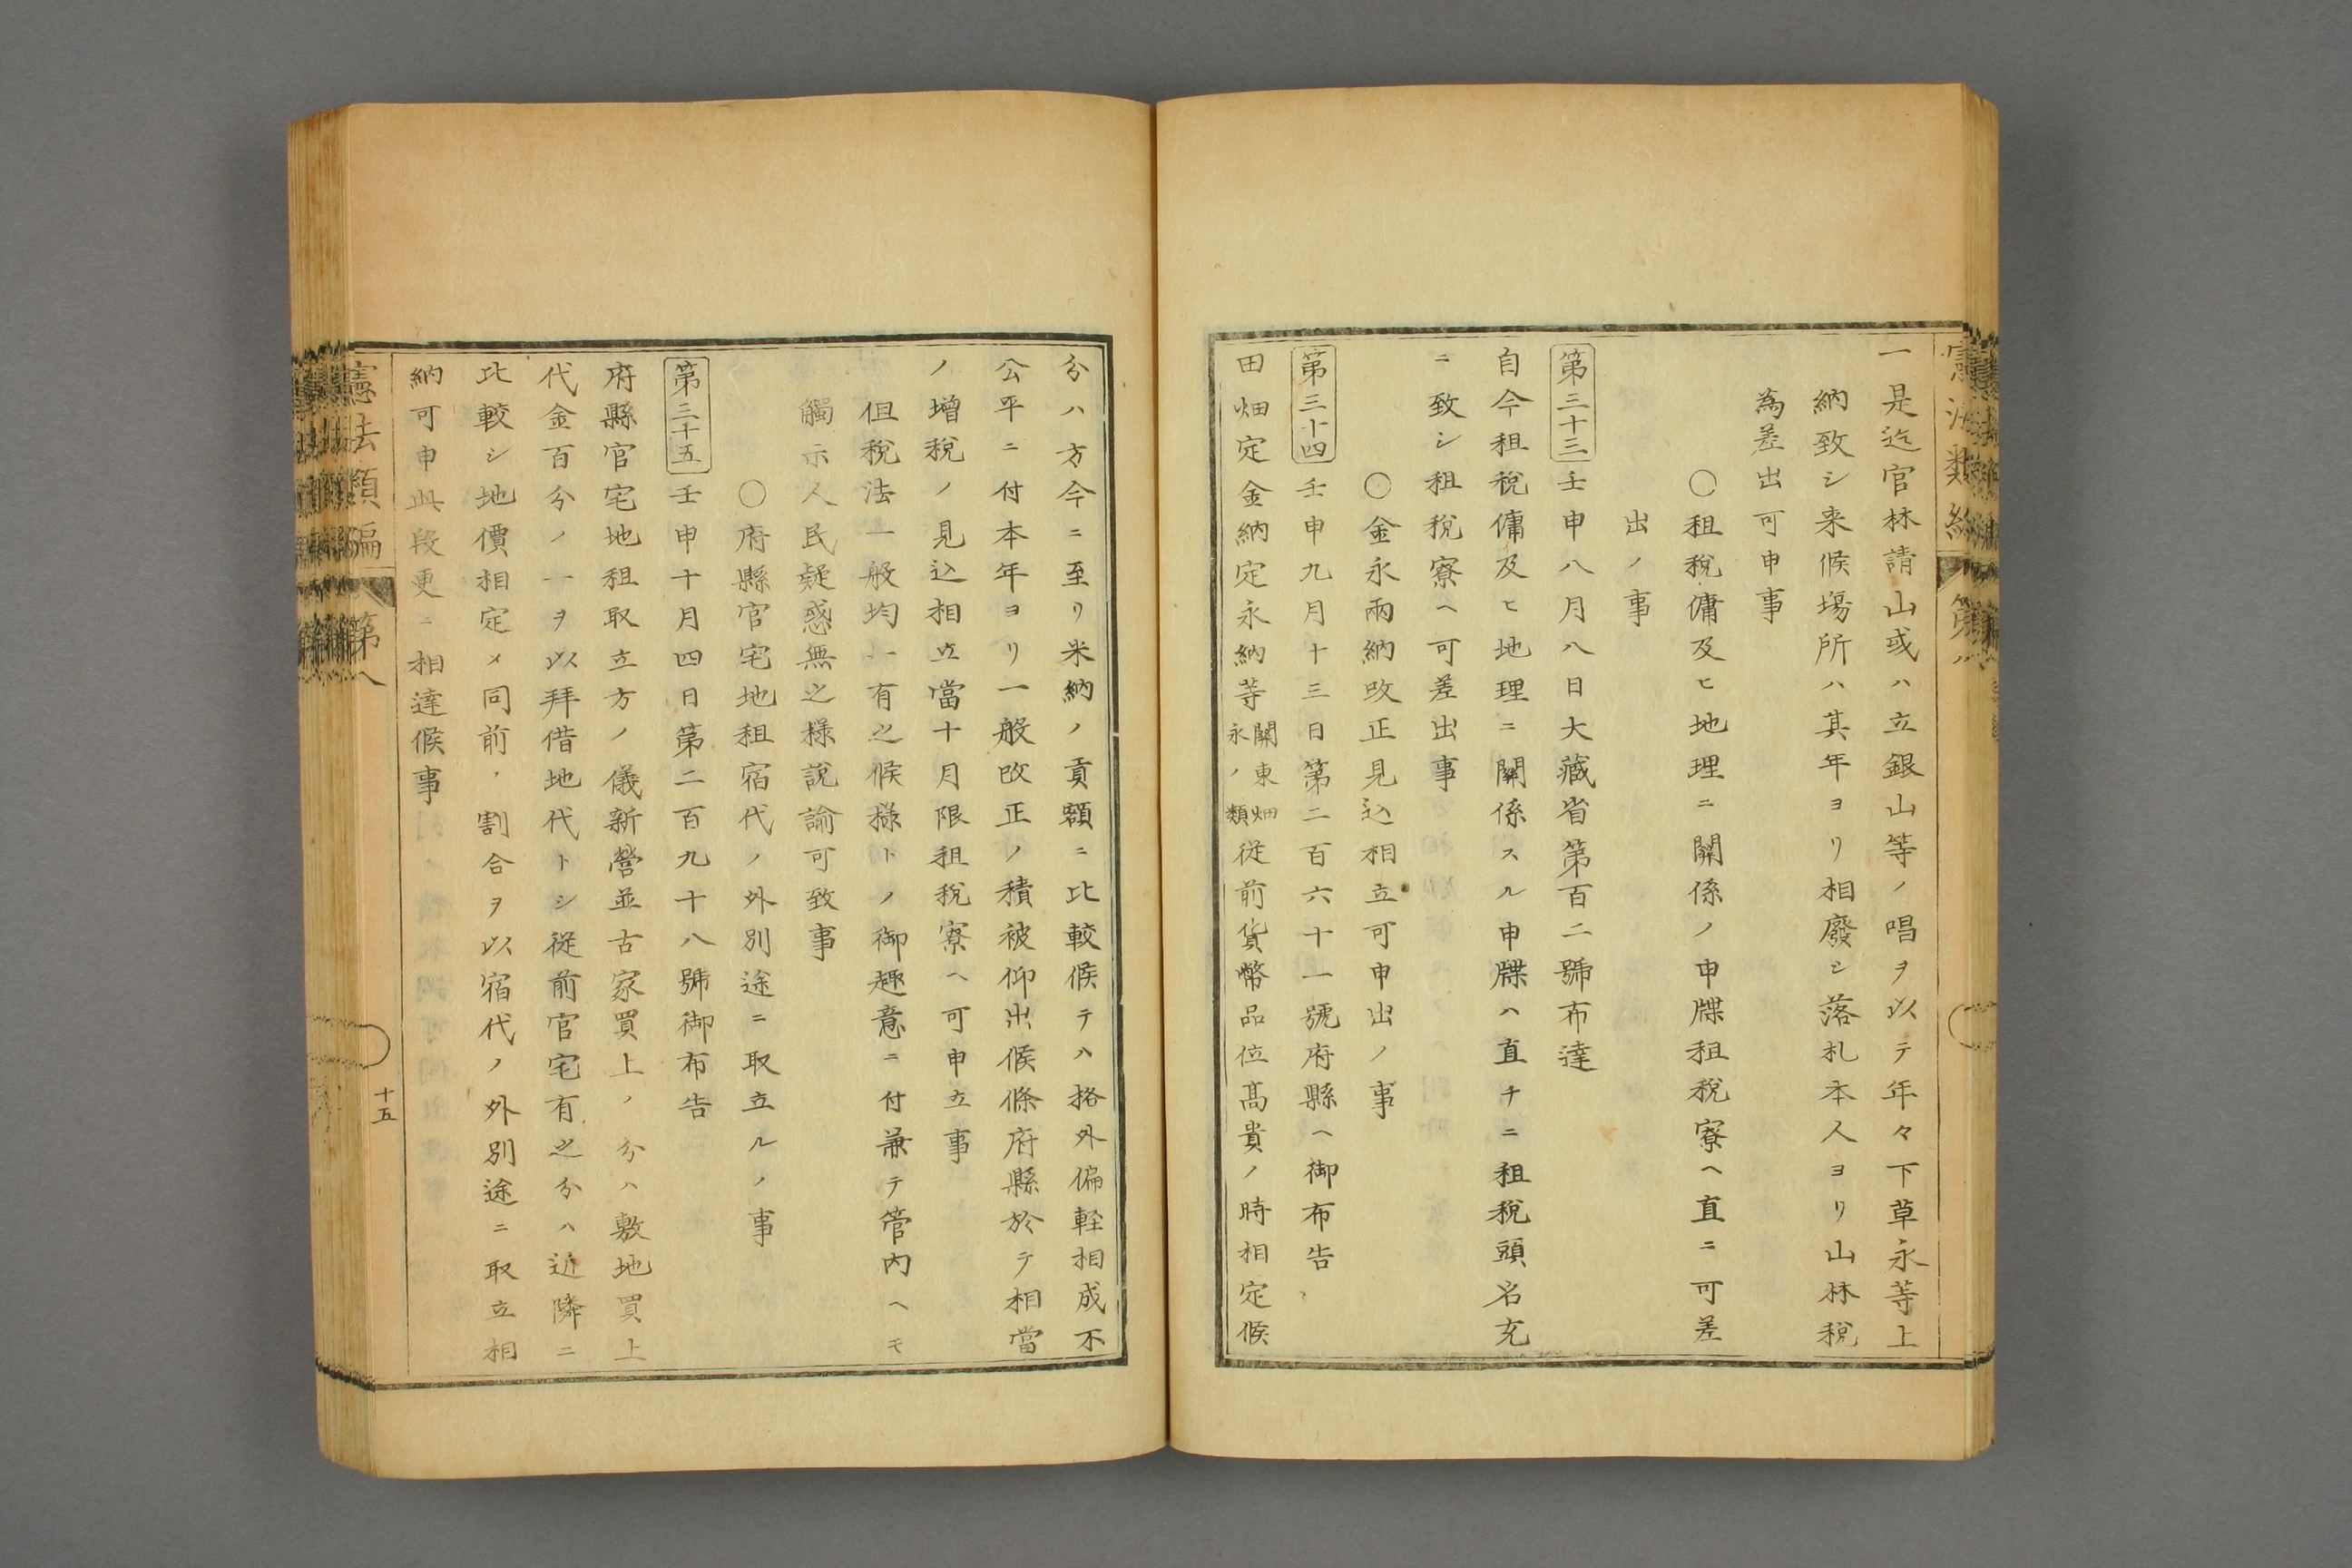 一是迄官林請山或ハ立銀山等ノ唱ヲ以テ年々下草永等上
納致シ来候場所ハ其年ヨリ相廢シ落札本人ヨリ山林稅
為差出可申事
〇租稅傭及ヒ地理ニ關係ノ申牒租稅寮ヘ直ニ可差
出ノ事
第三十三壬申八月八日大藏省第百二號布達
自今租稅傭及ヒ地理ニ關係スル申牒ハ直チニ租稅頭名充
ニ致シ租稅寮ヘ可差出事
〇金永兩納改正見込相立可申出ノ事
第三十四壬申九月十三日第二百六十一號府縣ヘ御布告
田畑定金納定永納等關東畑永ノ類從前貨幣品位髙貴ノ時相定候
憲法類編
第八
分ハ方今ニ至リ米納ノ貢額ニ比較候テハ格外偏軽相成不
公平ニ付本年ヨリ一般改正ノ積被仰出候條府縣於テ相當
ノ增稅ノ見込相立當十月限租稅寮ヘ可申立事
但稅法一般均一有之候様トノ御趣意ニ付兼テ管内ヘモ
觸示人民疑惑無之様說諭可致事
〇府縣官宅地租宿代ノ外別途ニ取立ルノ事
第三十五壬申十月四日第二百九十八號御布告
府縣官宅地租取立方ノ儀新營並古家買上ノ分ハ敷地買上
代金百分ノ一ヲ以拜借地代トシ從前官宅有之分ハ近隣ニ
比較シ地價相定メ同前ノ割合ヲ以宿代ノ外別途ニ取立相
納可申此段更ニ相達候事
憲法類編
第八
十五